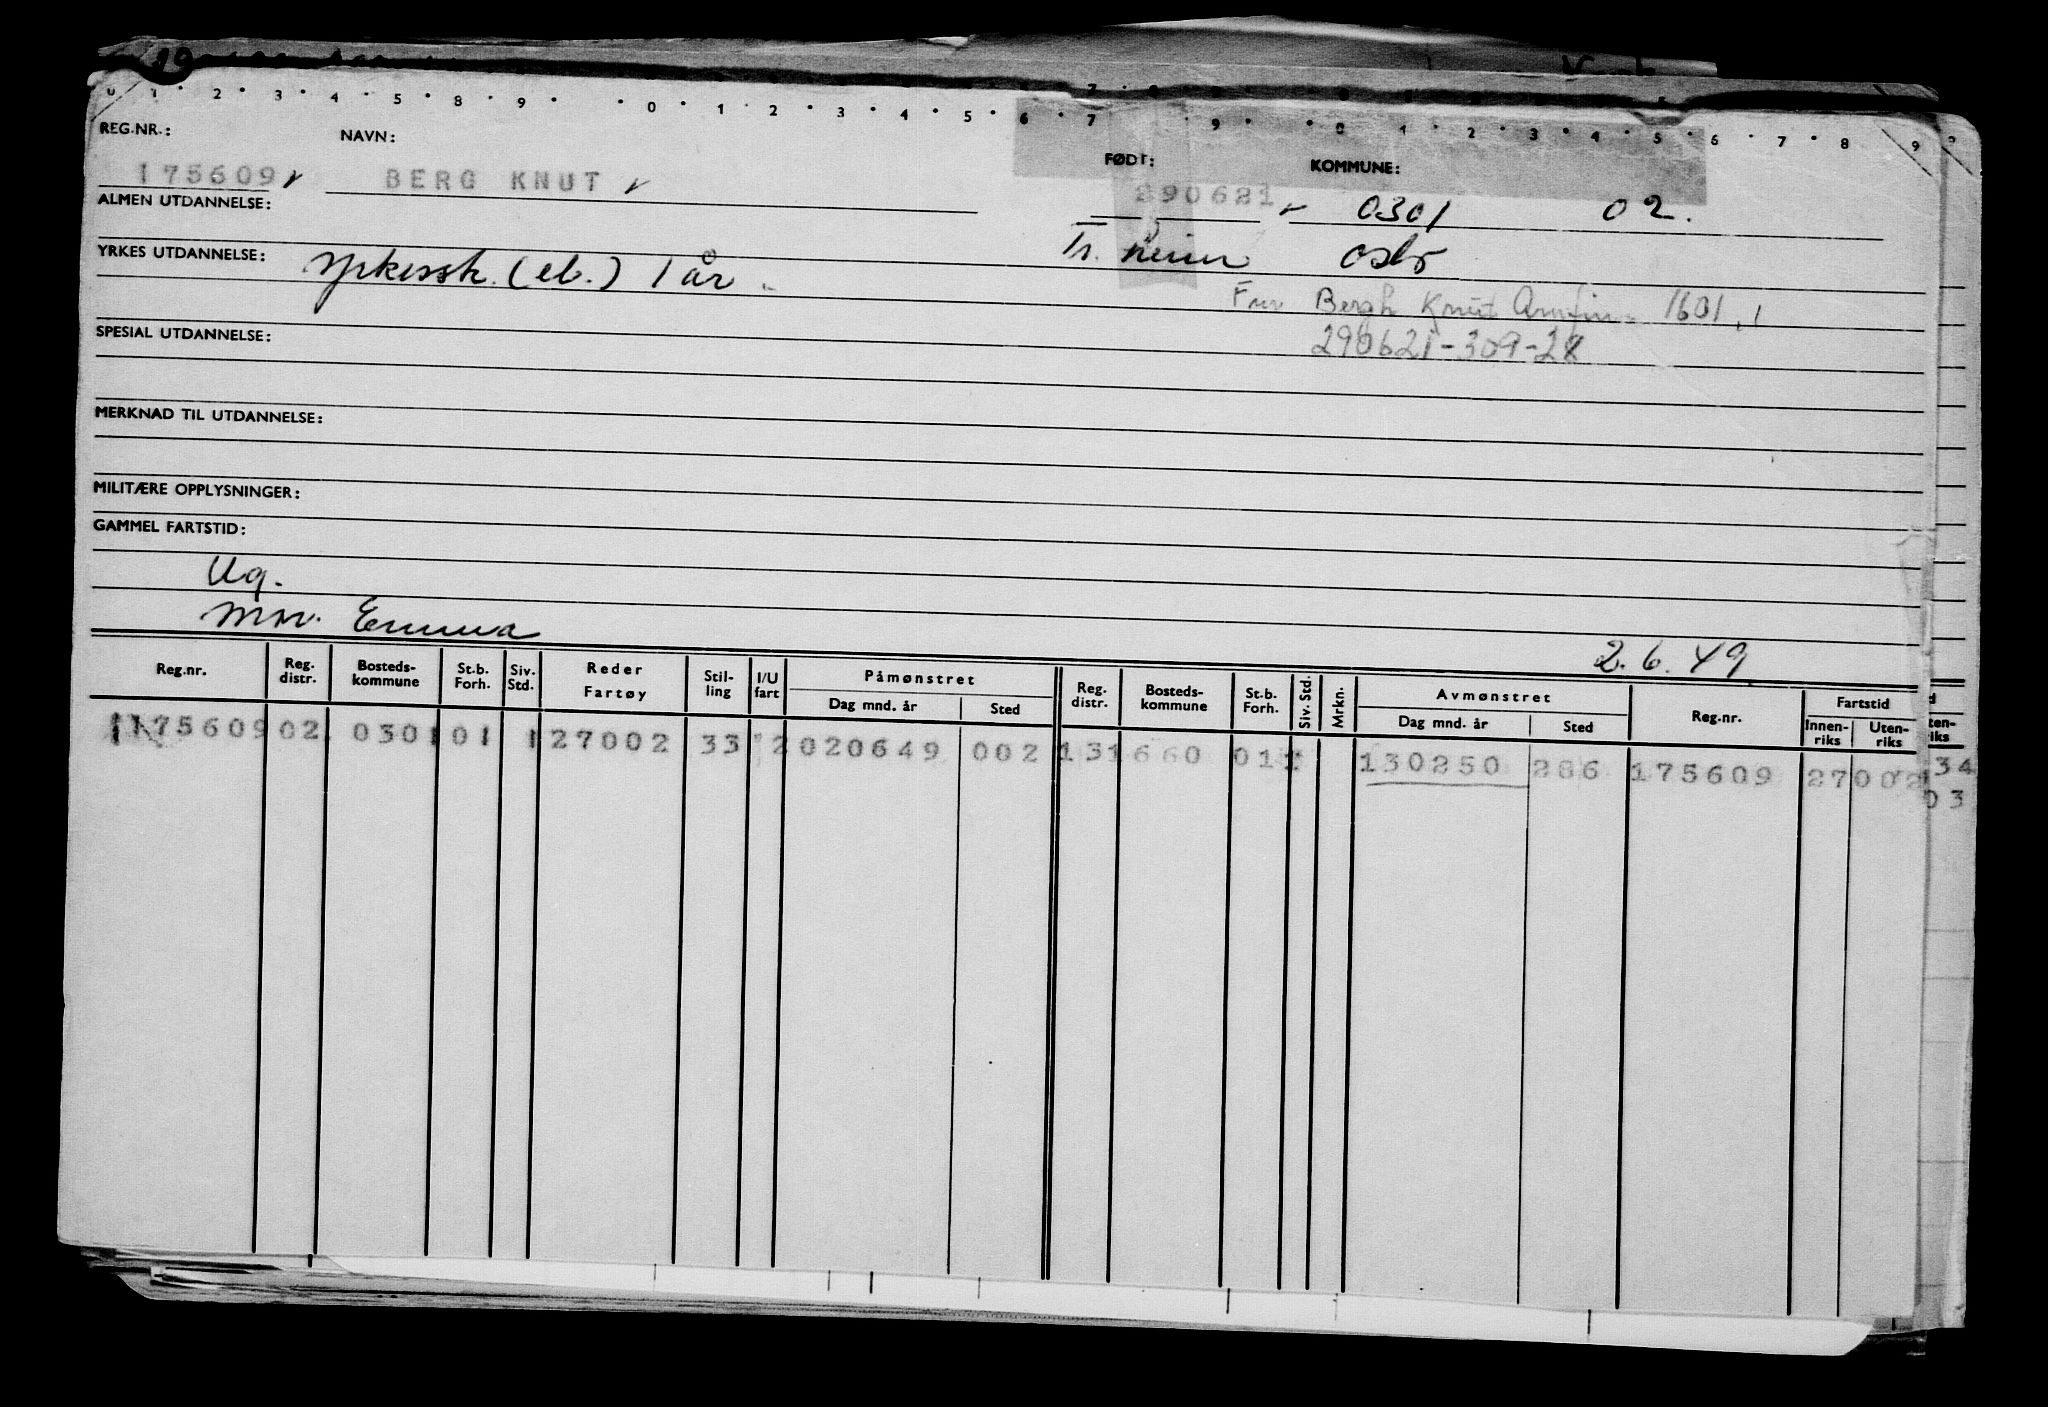 0 1 2 3 4 5 8 9 0 1 2 3 4 5 6 7 9 0 1 2 3 4 5 6 7 8 9
REG.NR.: NAVN: FØDT: KOMMUNE:
175609 BERG KNUT 290621 0301 02.
ALMEN UTDANNELSE:
Tr. heim Oslo
YRKES UTDANNELSE: Yrkessk. (el.) 1 år
Bergh Knut Arnfin 1601,1
290621-309-28
SPESIAL UTDANNELSE:
MERKNAD TIL UTDANNELSE:
MILITÆRE OPPLYSNINGER:
GAMMEL FARTSTID:
Ug.
Mor. Emma
2.6.49
Reg.nr. Reg. distr. Bosteds-kommune St.b. Forh. Siv. Std. Reder Fartøy Stil-ling I/U fart Påmønstret Dag mnd. år Sted Reg. distr. Bosteds-kommune St.b. Forh. Siv. Std. Mrkn. Avmønstret Dag mnd. år Sted Reg.nr. Fartstid Innen-riks Uten-riks
175609 02 0301 01 1 27002 33 2 020649 002 13 1660 01 1 130250 286 175609 27002
34
03